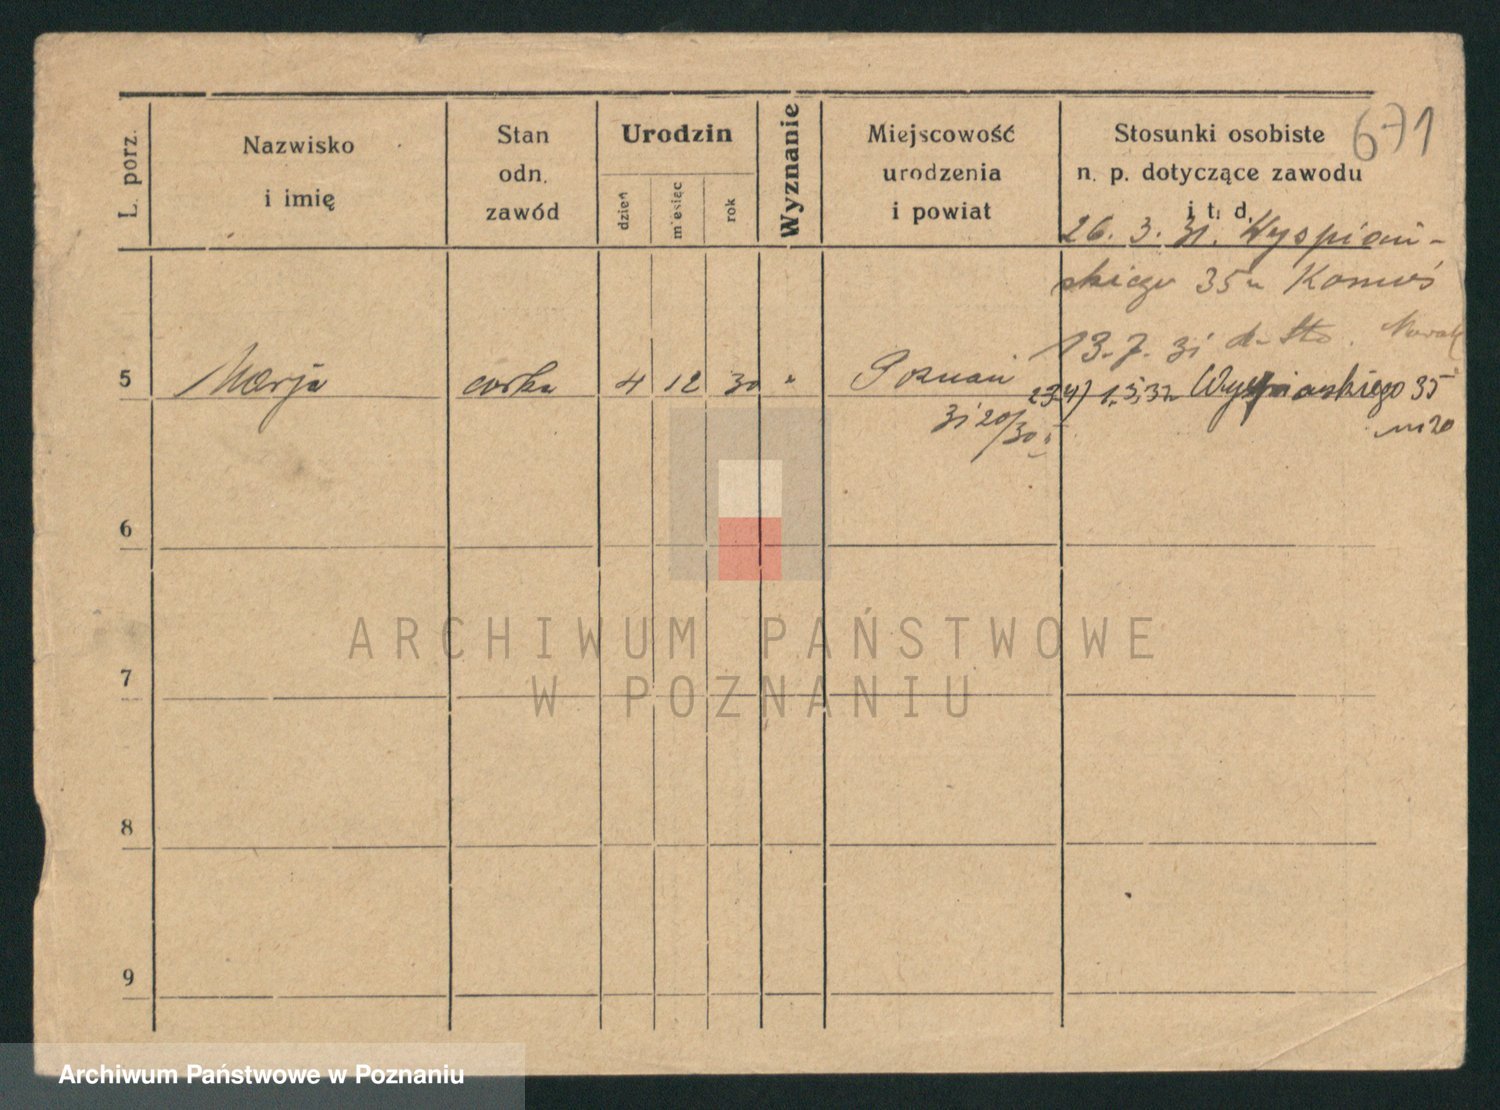 671
L. porz.
Nazwisko
i imię
Stan
odn.
zawód
Urodzin
dzień
miesiąc
rok
Wyznanie
Miejscowość
urodzenia
i powiat
Stosunki osobiste
n. p. dotyczące zawodu
i t. d.
26. 3. 31. Wyspiań-
skiego 35
13. 7. 31
5 Marja córka 4 12 30 " Poznań
1.5.32 Wyspiańskiego 35
m 20
6
7
8
9
ARCHIWUM PAŃSTWOWE
W POZNANIU
Archiwum Państwowe w Poznaniu